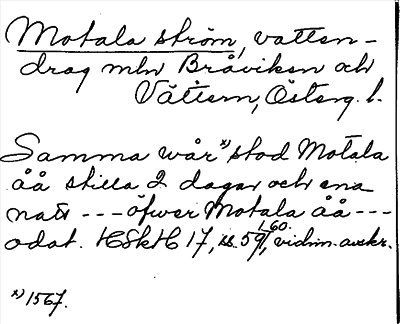 Motala ström, vatten-
drag mln Bråviken och
Vättern, Österg. l.
Samma wår x) stod Motala
åå stilla 2 dagar och ena
natt --- öfwer Motala åå ---
odat. HSkH 17, s. 59, 60, vidim. avskr.
x) 1567.